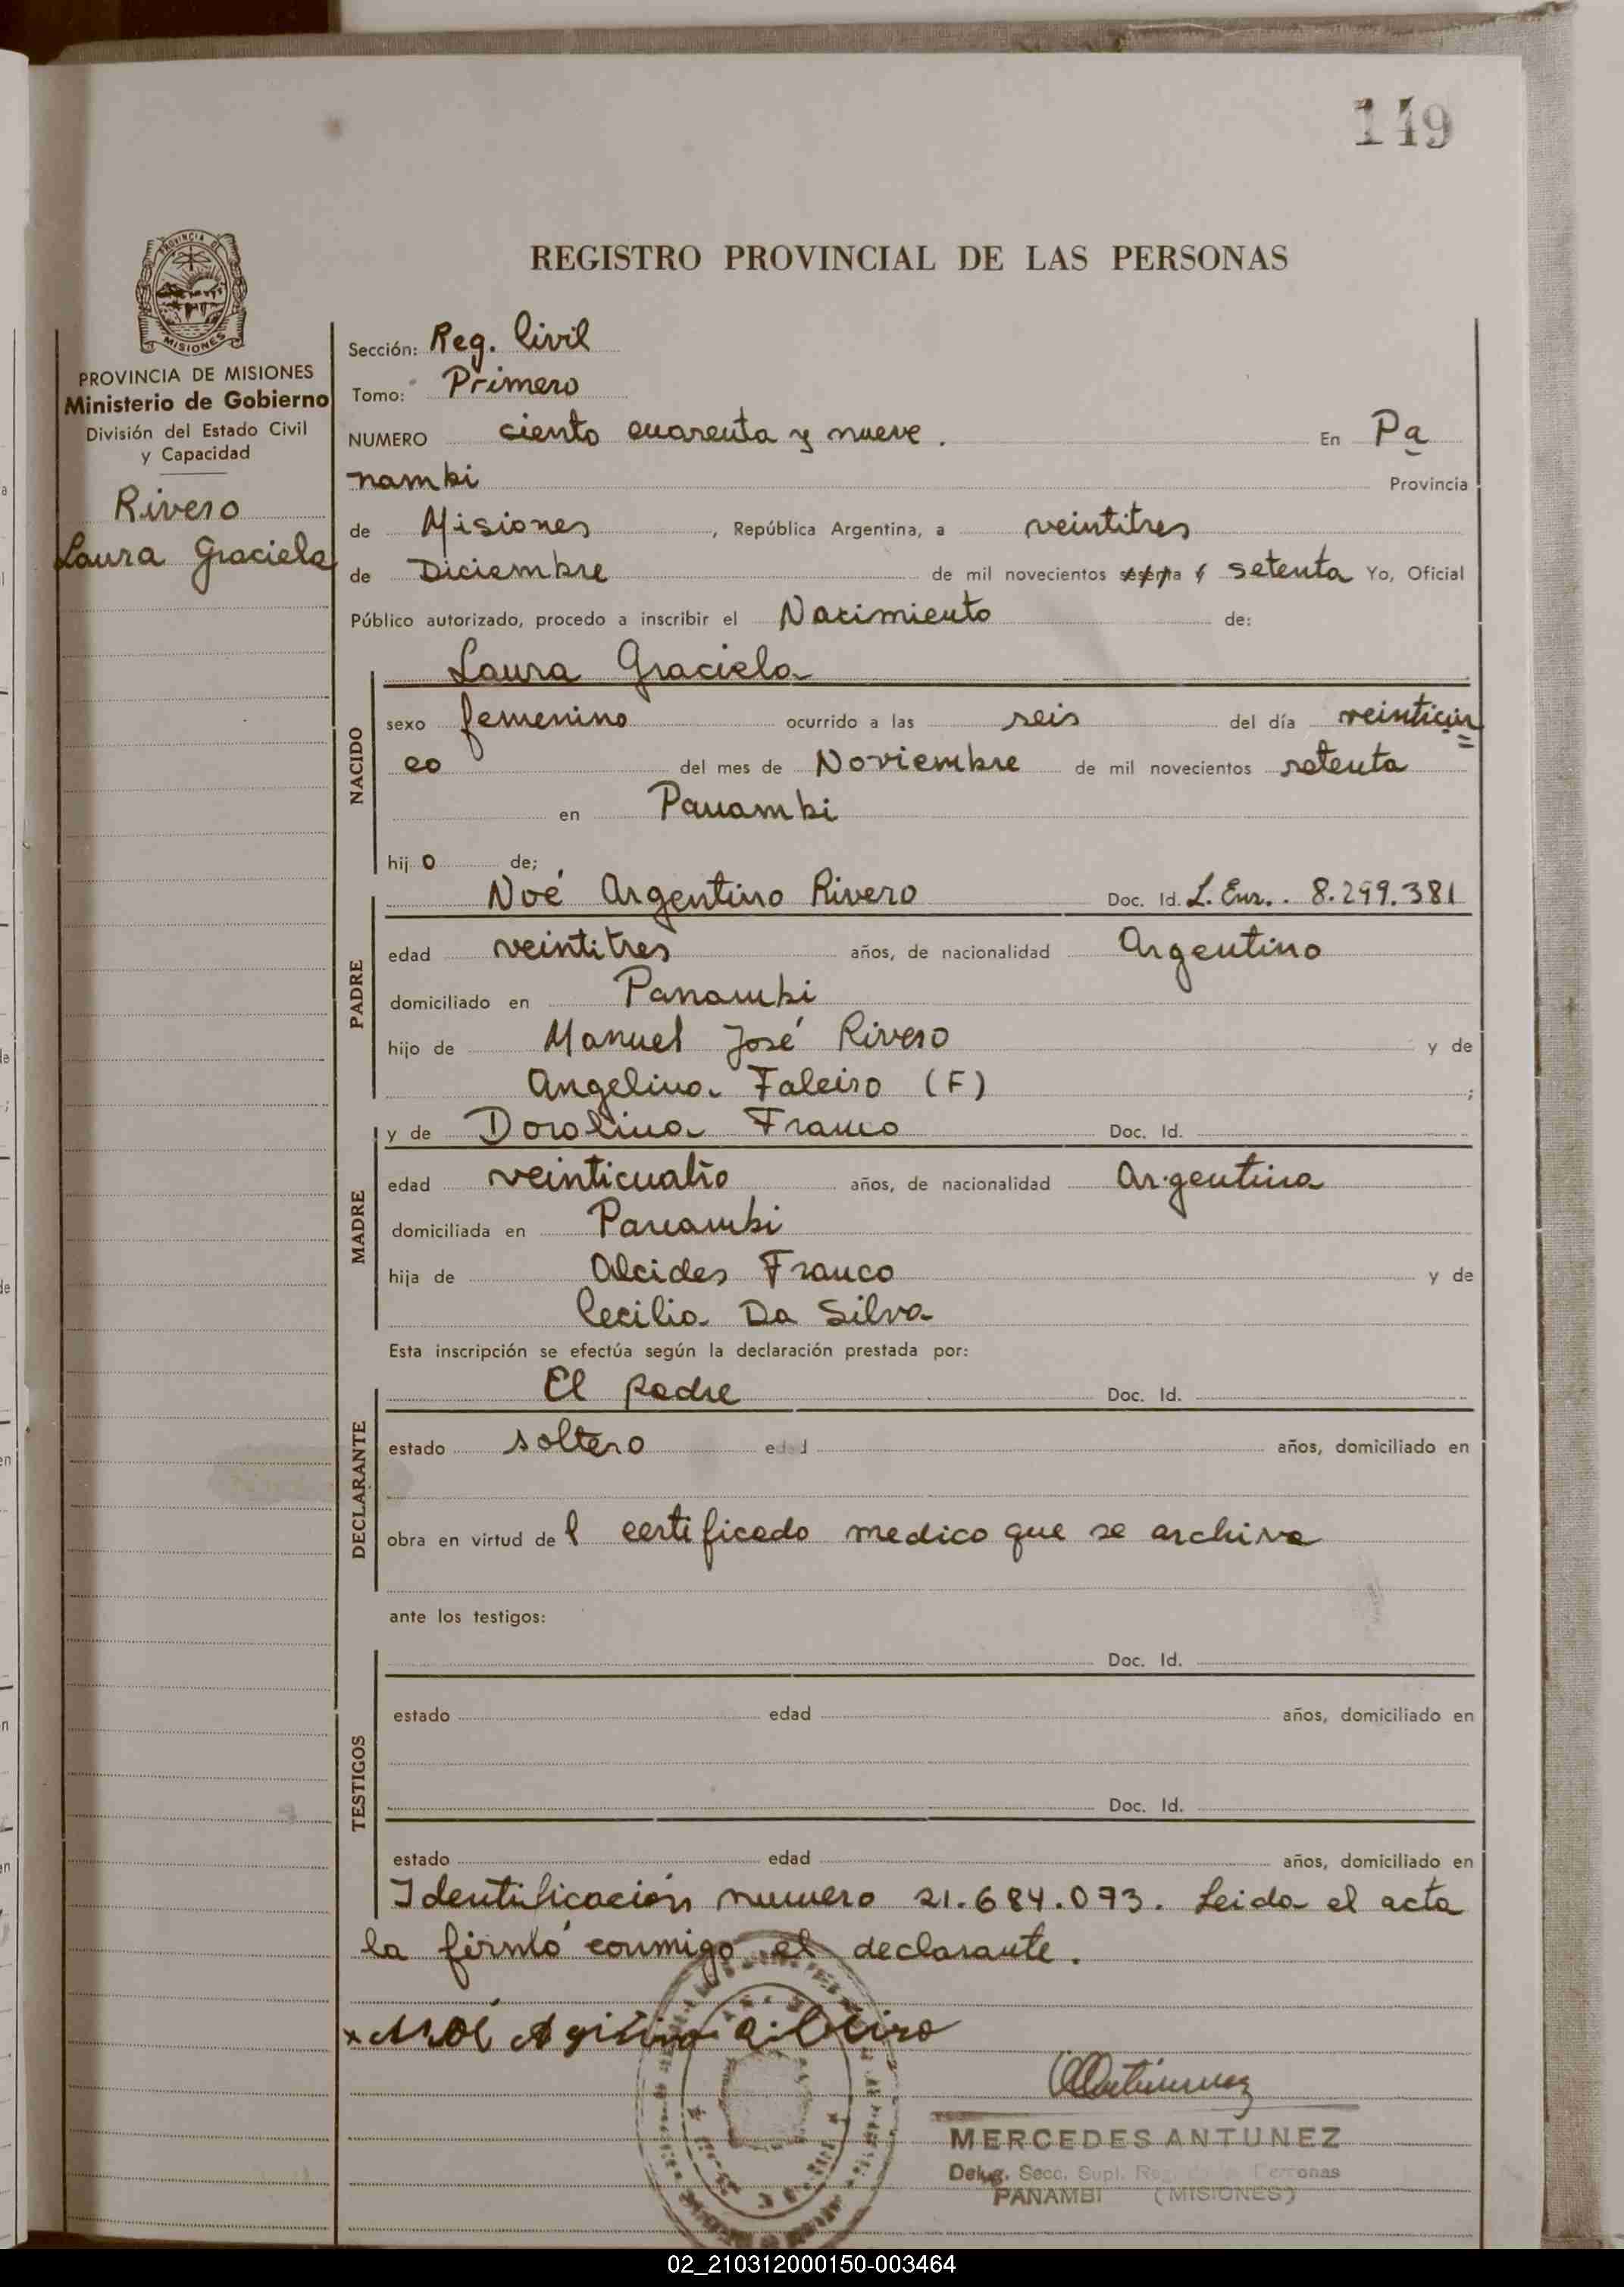 149
REGISTRO PROVINCIAL DE LAS PERSONAS
PROVINCIA DE MISIONES
Ministerio de Gobierno
División del Estado Civil
y Capacidad
Rivero
Laura Graciela
Sección: Reg. Civil
Tomo: Primero
NUMERO ciento cuarenta y nueve. En Pa
nambi Provincia
de Misiones, República Argentina, a veintitres
de Diciembre de mil novecientos sesenta y setenta Yo, Oficial
Público autorizado, procedo a inscribir el Nacimiento de:
Laura Graciela
NACIDO
sexo femenino ocurrido a las seis del día veinticin
co del mes de Noviembre de mil novecientos setenta
en Panambi
hij o de;
Noé Argentino Rivero Doc. Id. L. Enr.. 8.299.381
PADRE
edad veintitres años, de nacionalidad Argentino
domiciliado en Panambi
hijo de Manuel José Rivero y de
Angelina Faleiro (F) ;
y de Dorolina Franco Doc. Id.
MADRE
edad veinticuatro años, de nacionalidad Argentina
domiciliada en Panambi
hija de Alcides Franco y de
Cecilia Da Silva
Esta inscripción se efectúa según la declaración prestada por:
El padre Doc. Id.
DECLARANTE
estado soltero edad años, domiciliado en
obra en virtud de l certificado medico que se archiva
ante los testigos:
Doc. Id.
TESTIGOS
estado edad años, domiciliado en
Doc. Id.
estado edad años, domiciliado en
Identificación numero 21.684.073. Leida el acta
la firmó conmigo el declarante.
MERCEDES ANTUNEZ
Deleg. Secc. Supl. Personas
PANAMBI (MISIONES)
02_210312000150-003464